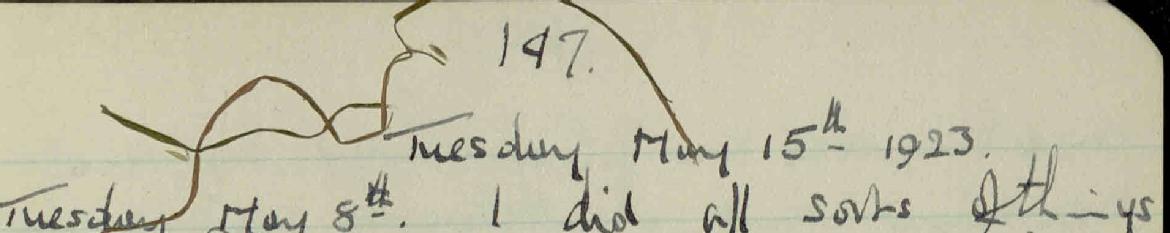 147.
Tuesday May 15th 1923.
Tuesday May 8th. I did all sorts of things